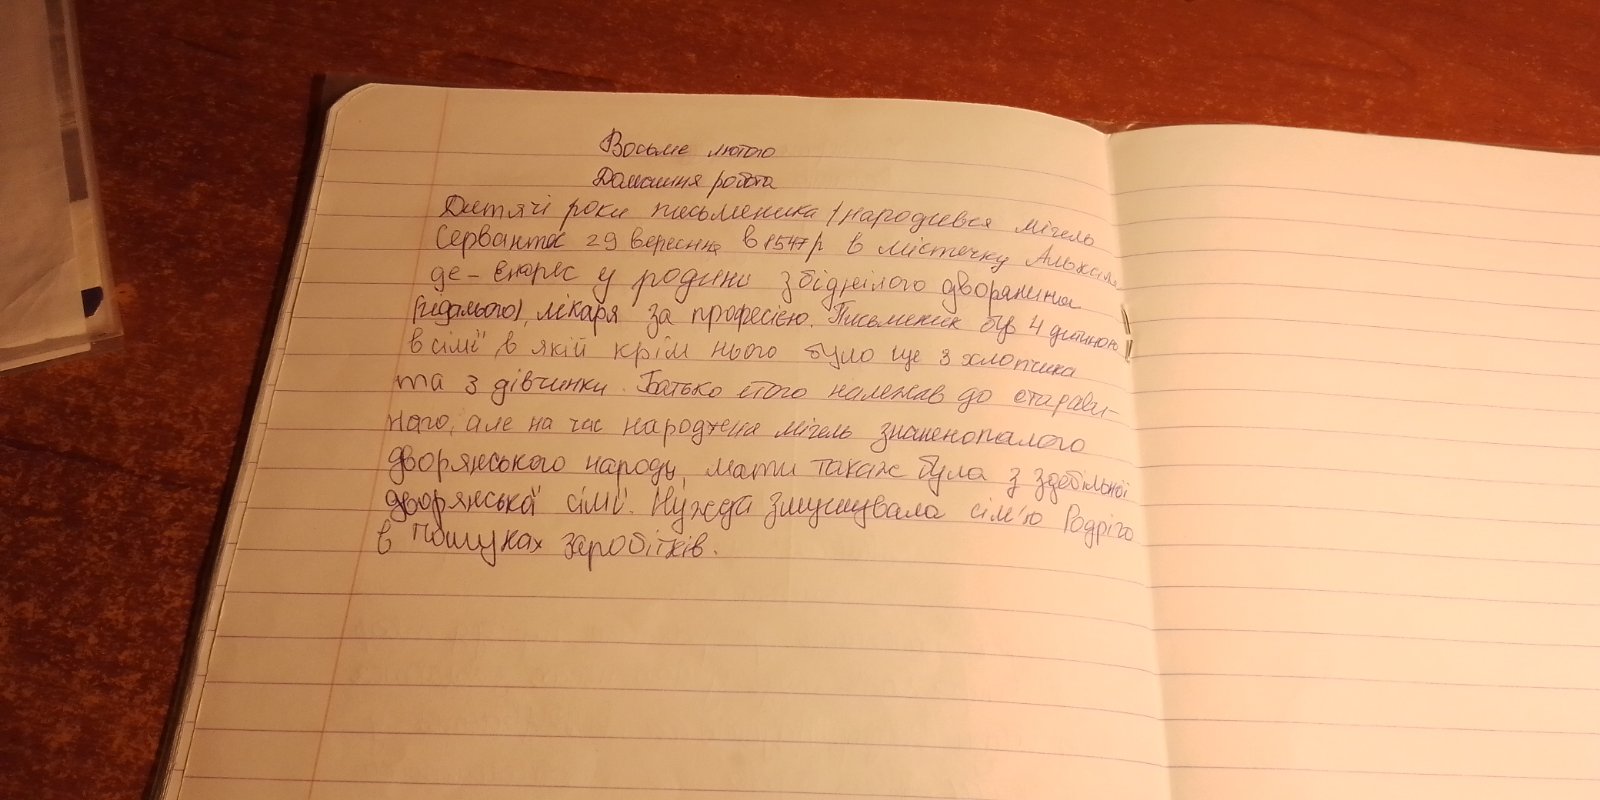 Восьме лютого
Домашня робота
Дитячі роки письменика / народився Мігель
Сервантес 29 вересня в 1547 р в містечку Алькала
де - Енарес у родині збіднілого дворянина
(гідальго), лікаря за професією. Письменик був 4 дитиною
в сім'ї, в якій крім нього було ще 3 хлопчика
та 3 дівчинки. Батько його належав до старови-
ного, але на час народження Мігель
дворянського народу, мати також була з здебільної
дворянської сім'ї. Нужда змушувала сім'ю Родріго
в пошуках заробітків.